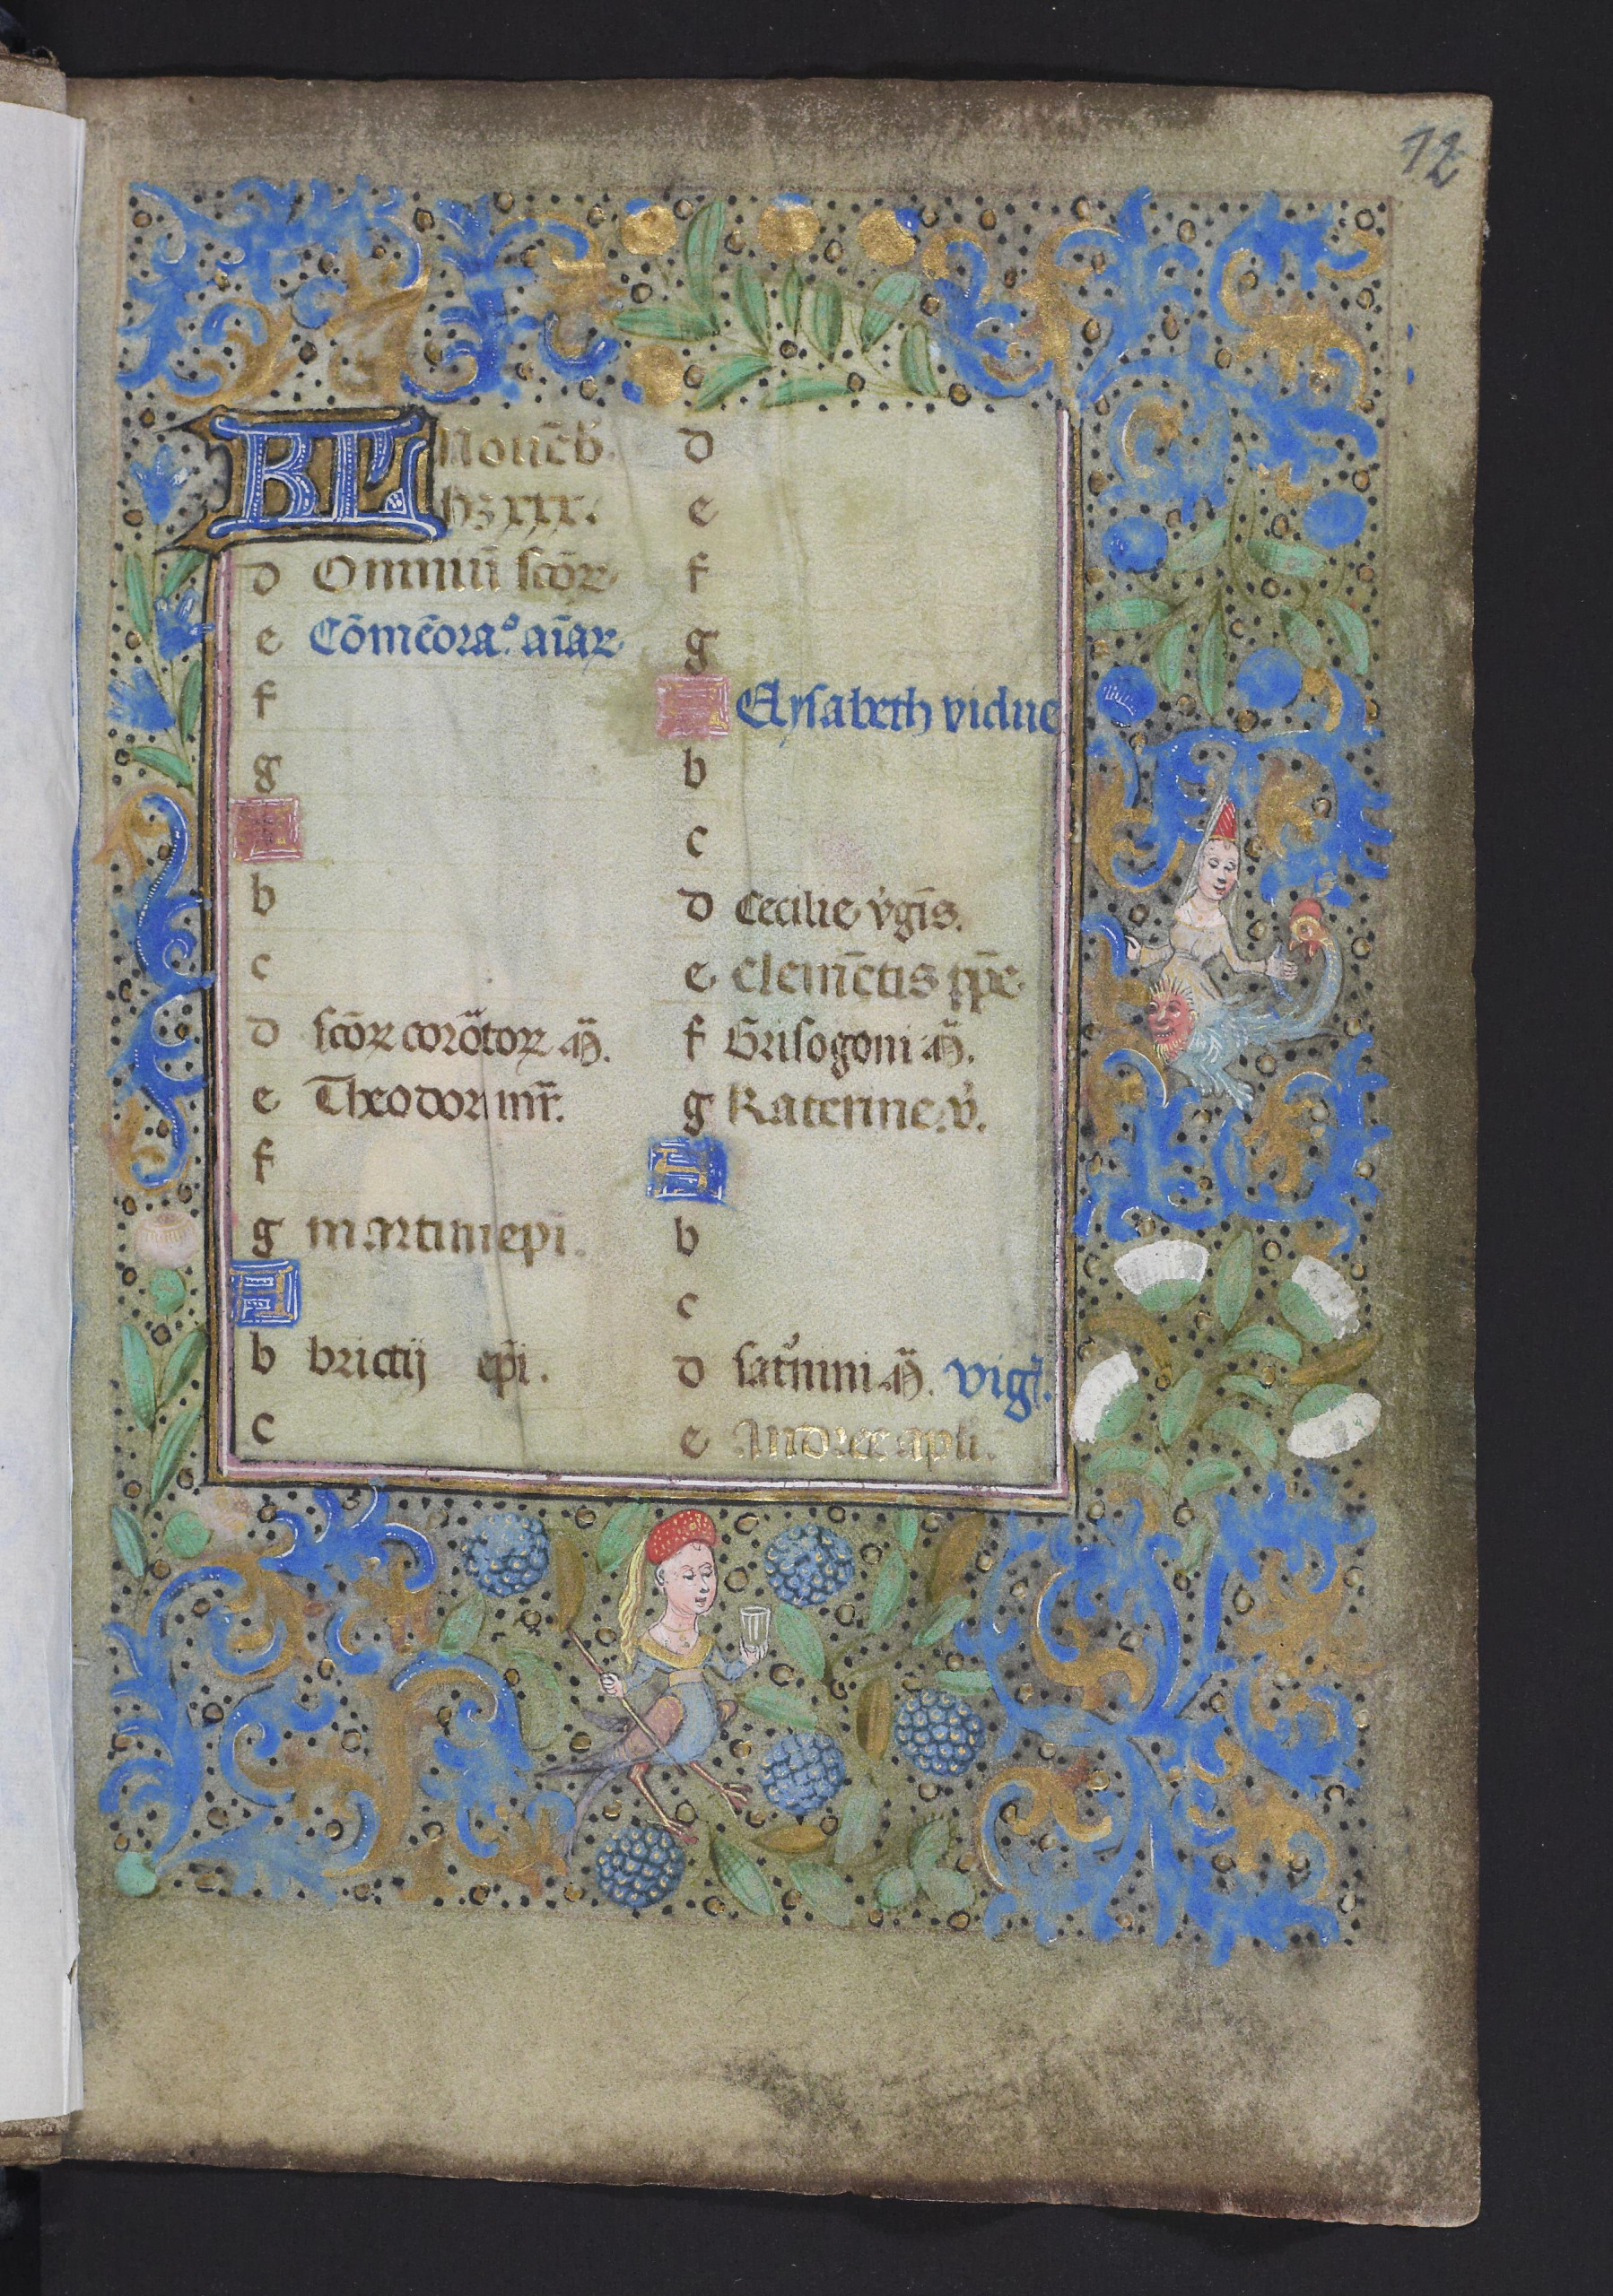 12
KL Nouēb.
hȝ xxx.
d Omniū scōꝝ
e Cōmēoraº. aīaꝝ
f
g
A
b
c
d scōꝝ coroᷓtoꝝ m̄.
e Theodori mr̄.
f
g martini epi.
A
b brictij ep̄i.
c
d
e
f
g
A Elysabeth vidue
b
c
d Cecilie v̓gīs.
e clemētis pp̄e
f Grisogoni m̄.
g Katerine. v̓.
A
b
c
d sat̓nini m̄. vigᷓ.
e Andree apli.